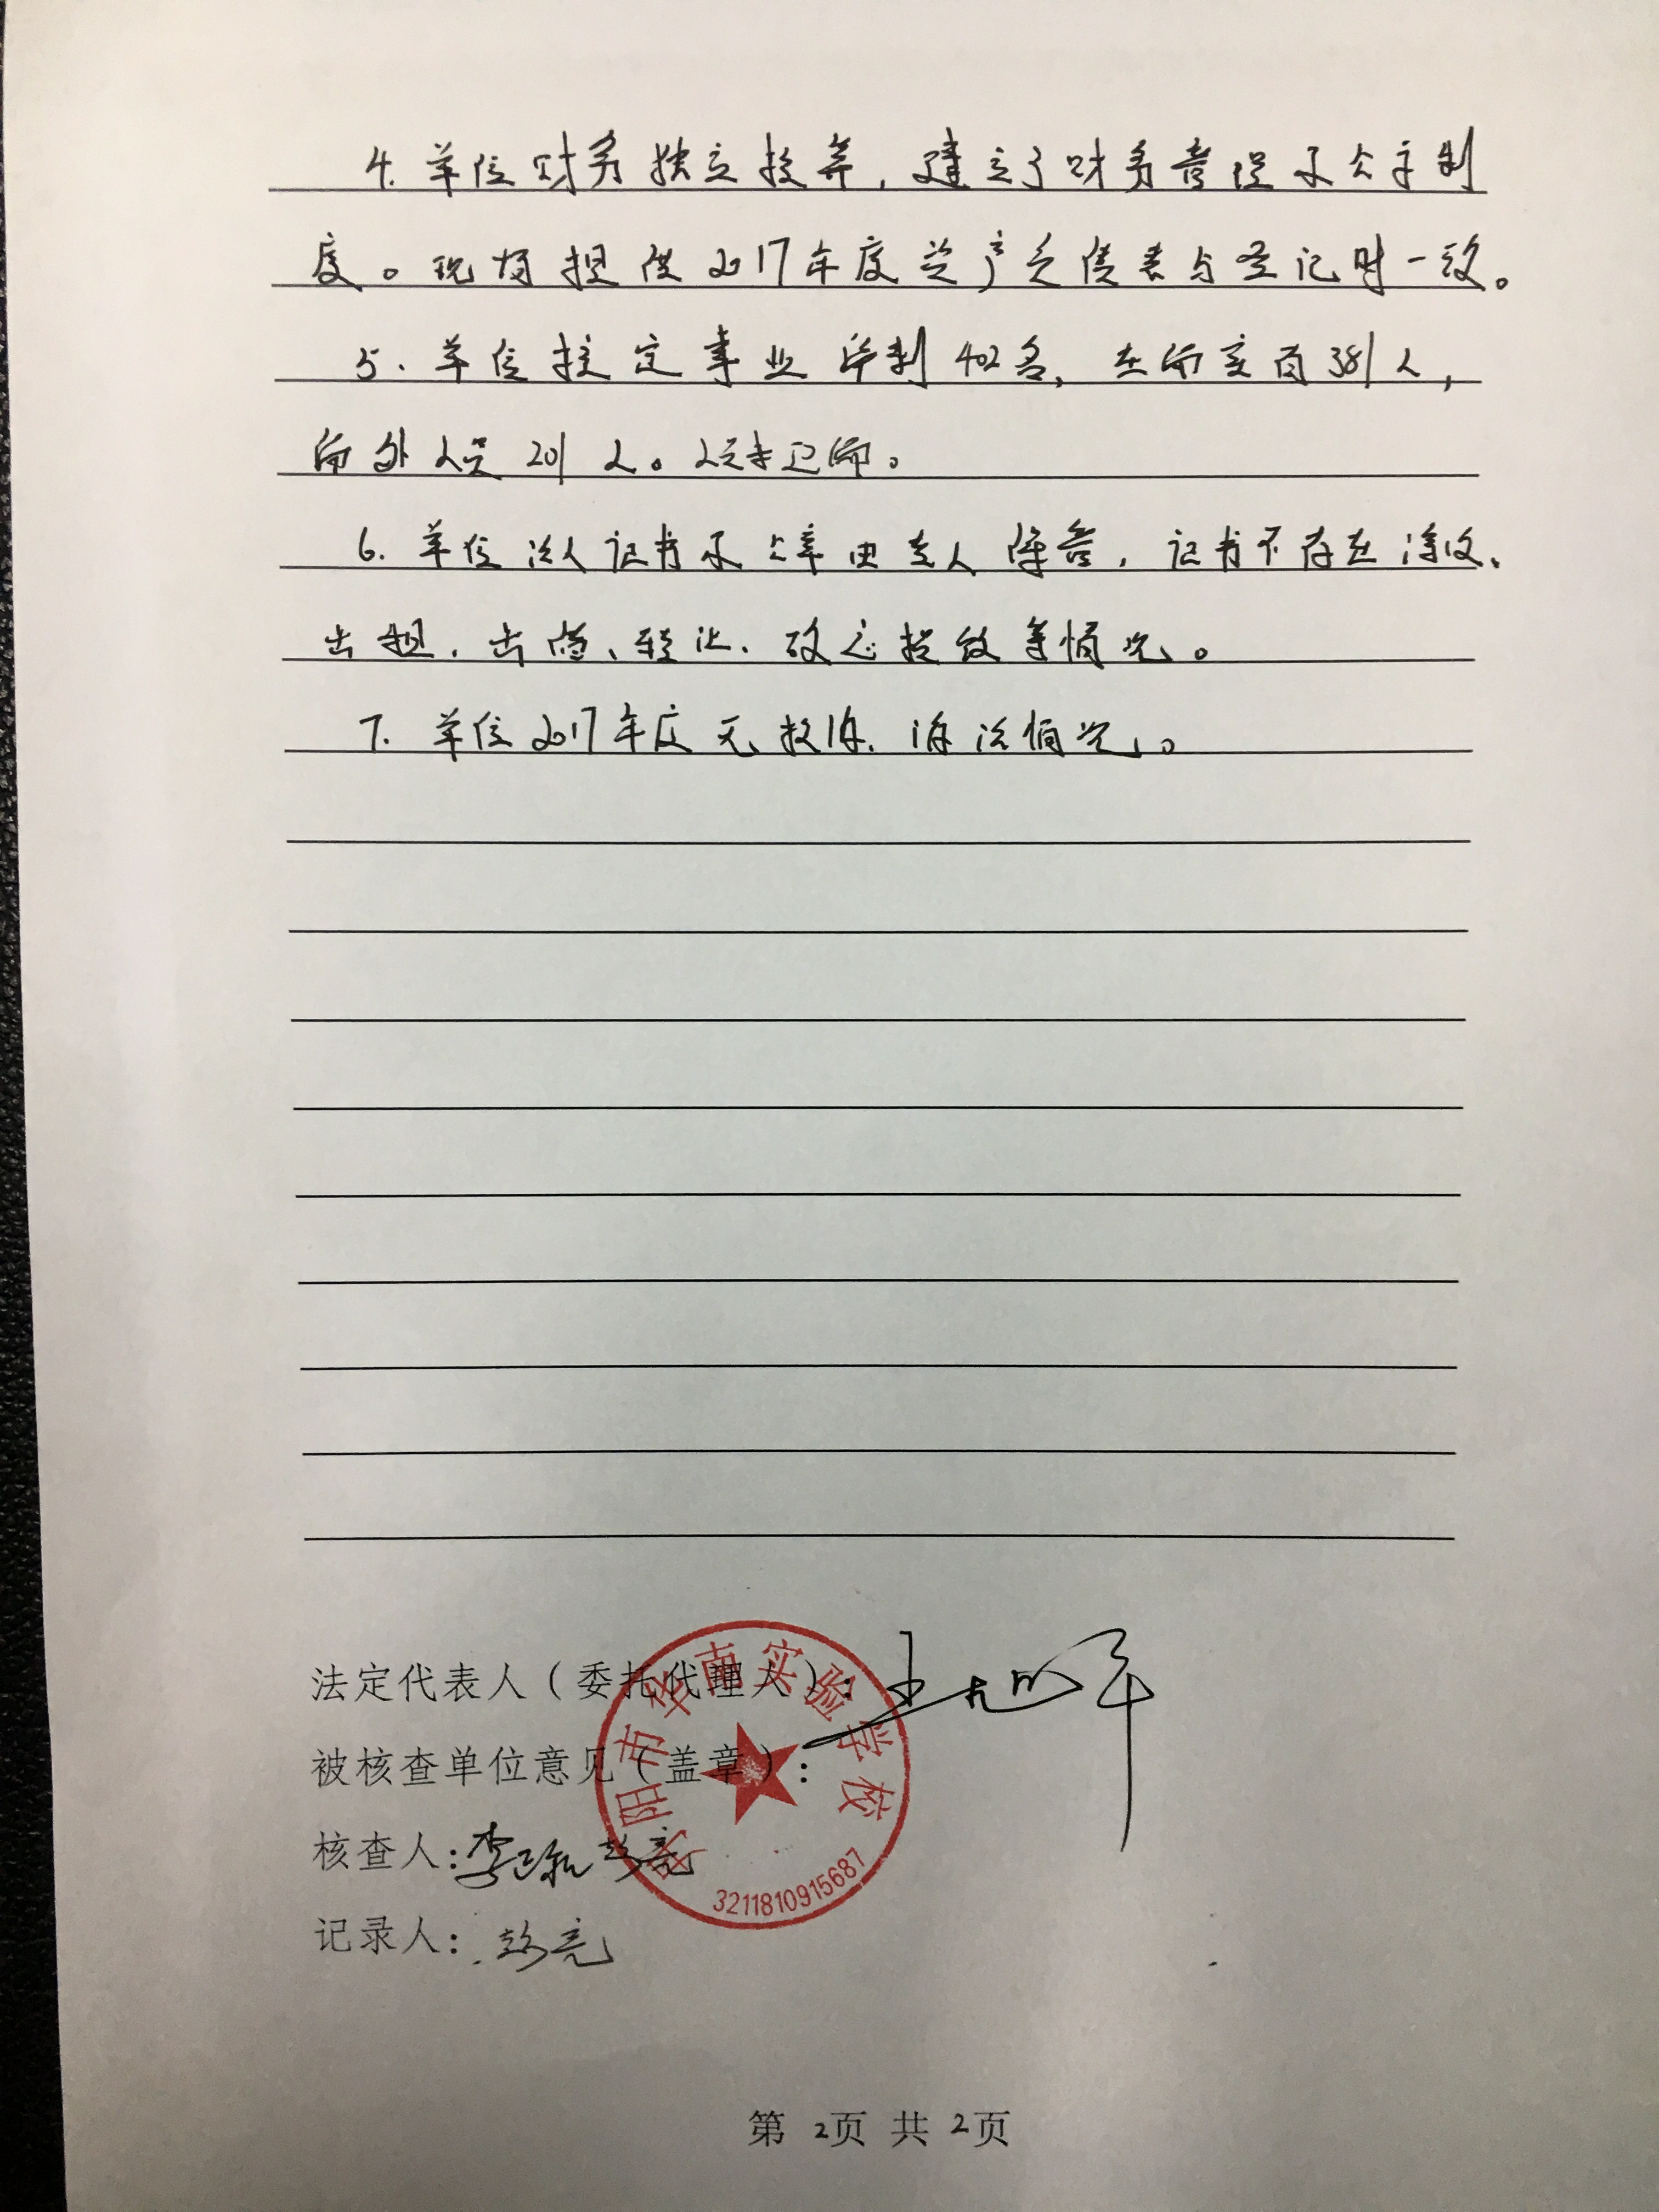 4. 单位财务独立核算,建立了财务管理及公章制
度。现场提供2017年度资产负债表与登记时一致。
5. 单位核定事业编制402名,在编人员381人,
编外人员201人。人员未超编。
6. 单位法人证书及公章由专人保管,证书不存在涂改、
出租、出借、转让、
等情况。
7. 单位2017年度无投诉、诉讼情况。
法定代表人(委托代理人):
被核查单位意见(盖章):
丹阳市华南实验学校
3211810915687
核查人:
彭亮
记录人:彭亮
第2页 共2页